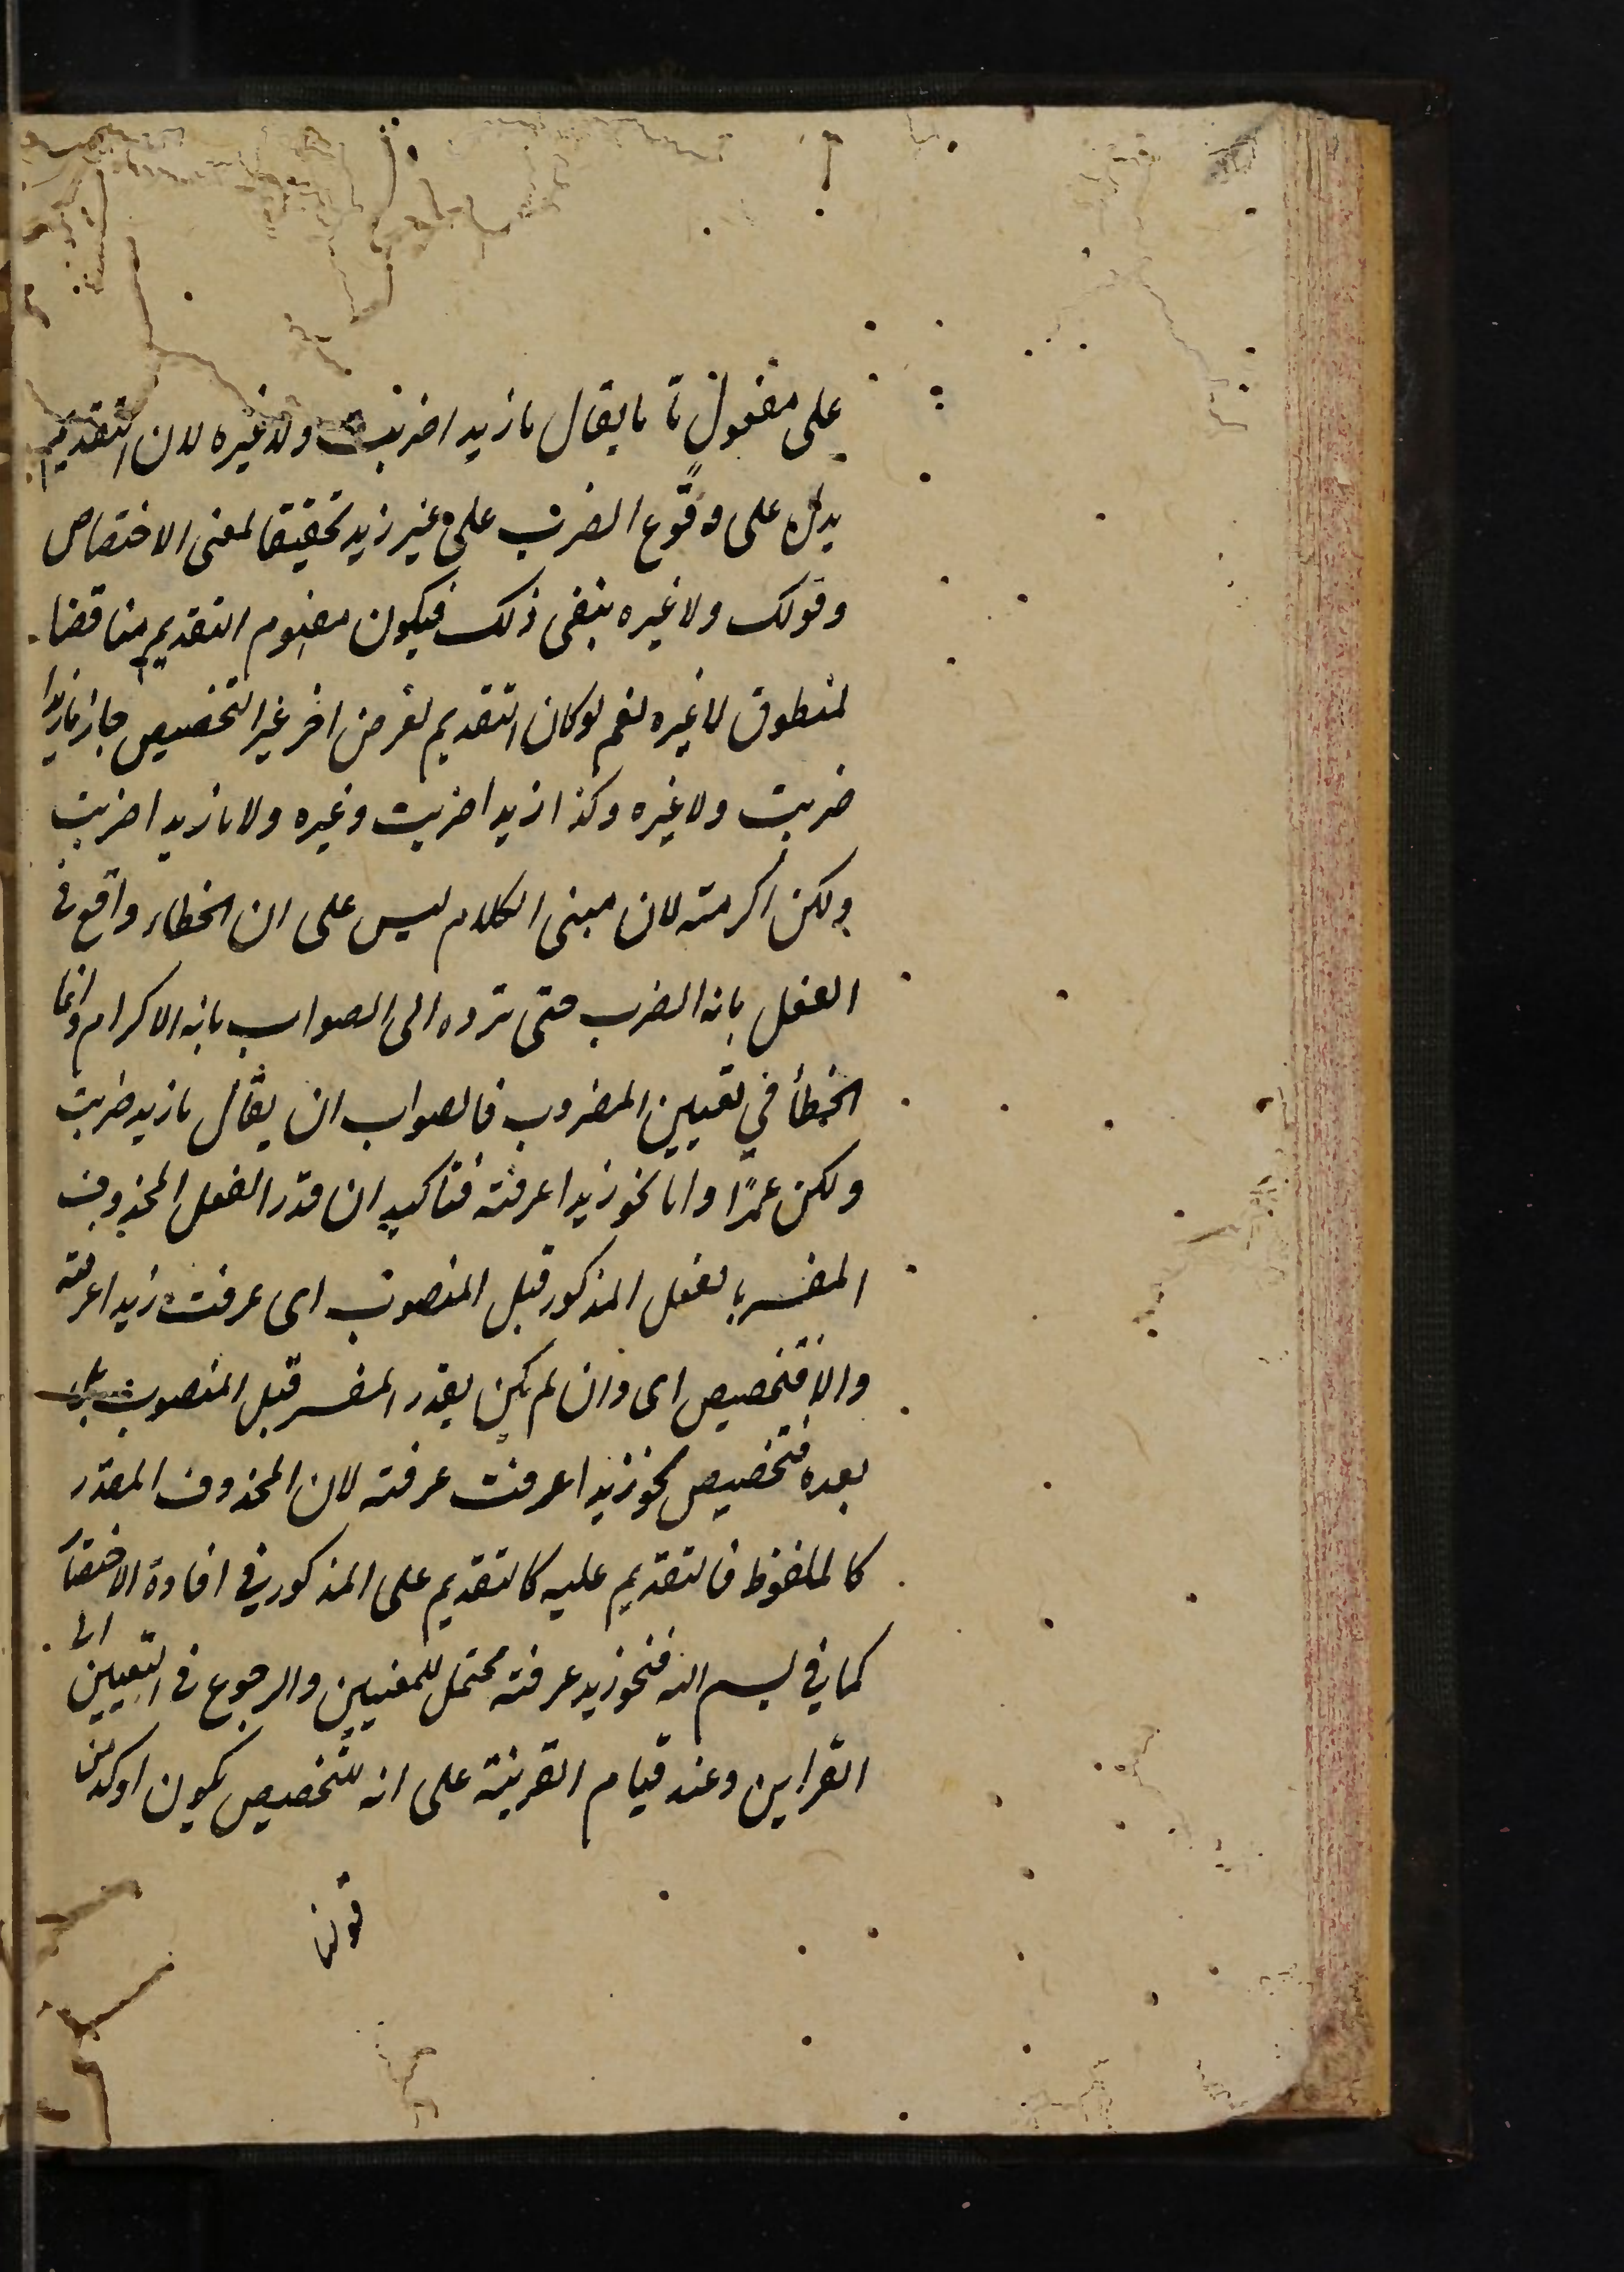 على مفعول ما ما يقال ما زيدا ضربت ولا غيره لان التقديم
يدل على وقوع الضرب على غير زيد تحقيقا لمعنى الاختصاص
وقولك ولا غيره ينفى ذلك فيكون مفهوم التقديم مناقضا
لمنطوق لا غيره نعم لو كان التقديم لغرض اخر غير التخصيص جاز ما زيدا
ضربت ولا غيره وكذا زيدا ضربت وغيره ولا ما زيدا ضربت
ولكن اكرمته لان مبنى الكلام ليس على ان الخطاء واقع فى
الفعل بانه الضرب حتى ترده الى الصواب بانه الاكرام وانما
الخطأ في تعيين المضروب فالصواب ان يقال ما زيدا ضربت
ولكن عمرًا واما نحو زيدا عرفته فتاكيد ان قدر الفعل المحذوف
المفسر بالفعل المذكور قبل المنصوب اى عرفت زيدا عرفته
والا فتخصيص اى وان لم يكن يقدر المفسر قبل المنصوب بل
بعده فتخصيص نحو زيدا عرفت عرفته لان المحذوف المقدر
كالملفوظ فالتقديم عليه كالتقديم على المذكور في افادة الاختصا
كما في بسم الله فنحو زيد عرفته محتمل للمعنيين والرجوع فى التعيين الى
القراين وعند قيام القرينة على انه للتخصيص يكون اوكد من
قولنا